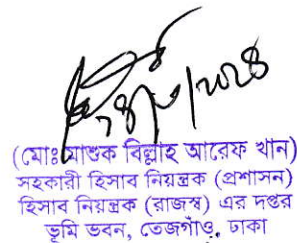 (মোঃ আশুক বিল্লাহ আরেফ খান)
সহকারী হিসাব নিয়ন্ত্রক (প্রশাসন)
হিসাব নিয়ন্ত্রক (রাজস্ব) এর দপ্তর
ভূমি ভবন, তেজগাঁও, ঢাকা